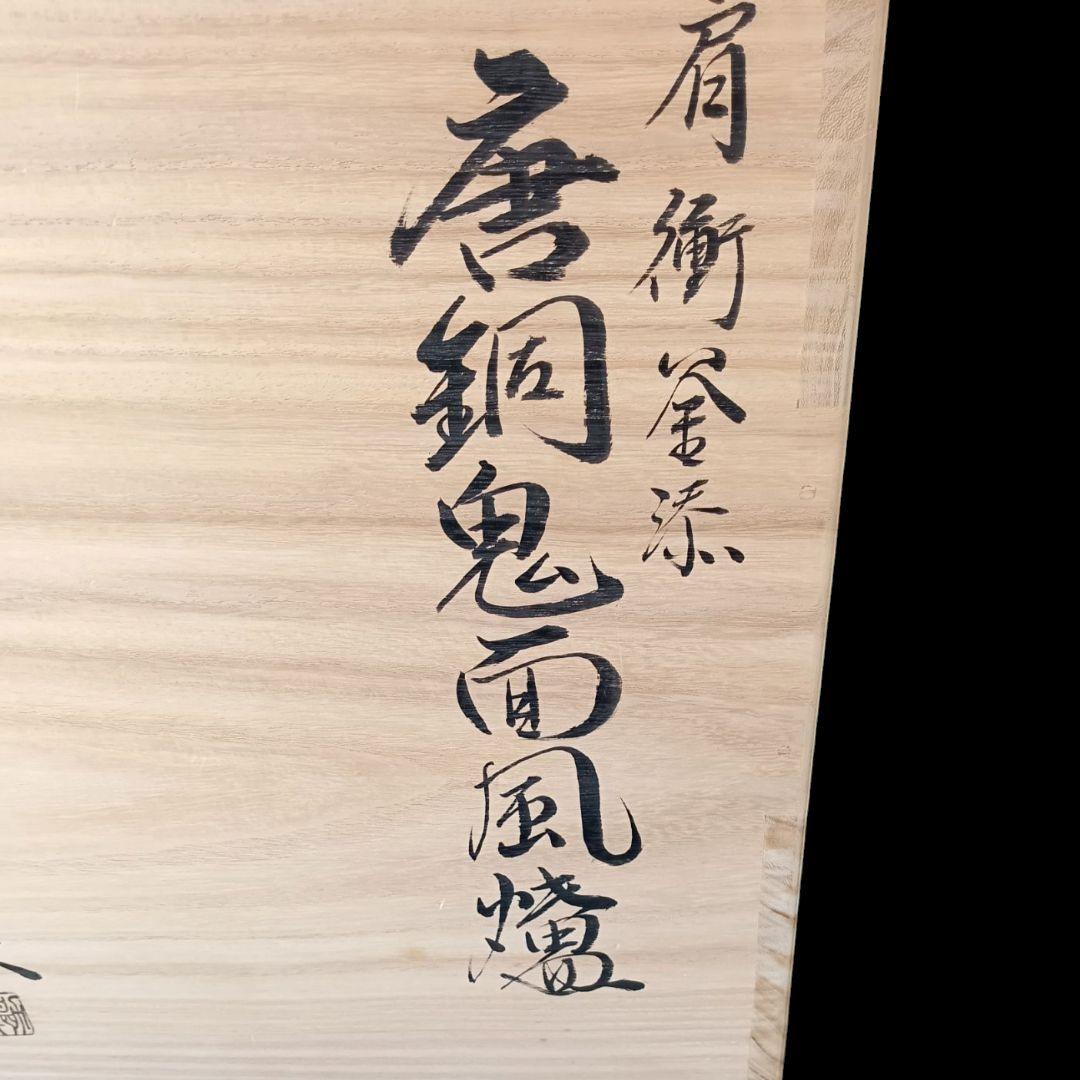 肩衝釜添
唐銅鬼面風爐